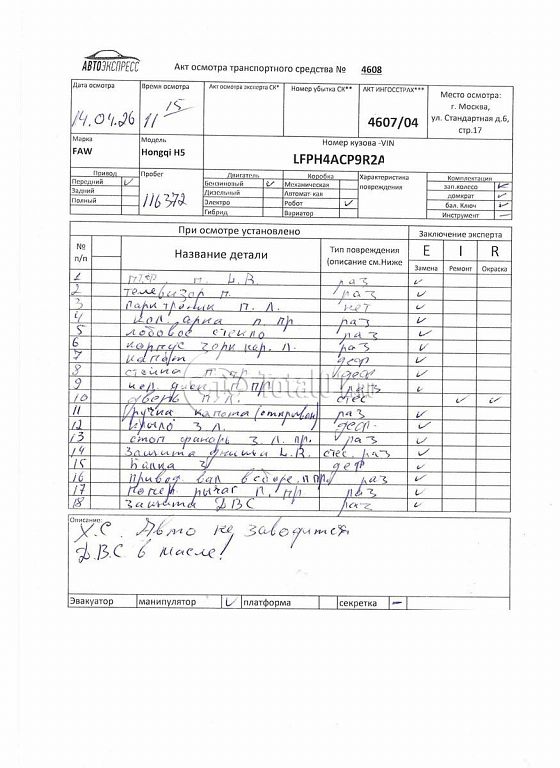 АВТОЭКСПРЕСС
Акт осмотра транспортного средства № 4608
Дата осмотра Время осмотра Акт осмотра эксперта СК* Номер убытка СК** АКТ ИНГОССТРАХ*** Место осмотра:
г. Москва,
ул. Стандартная д.6,
стр.17
14.04.26 11 15 4607/04
Марка Модель Номер кузова -VIN
FAW Hongqi H5 LFPH4ACP9R2A
Привод Пробег Двигатель Коробка Характеристика повреждения Комплектация
Передний ✓ 116372 Бензиновый ✓ Механическая зап.колесо ✓
Задний Дизельный Автомат-кая домкрат ✓
Полный Электро Робот ✓ бал. Ключ ✓
Гибрид Вариатор Инструмент –
При осмотре установлено Заключение эксперта
№ п/п Название детали Тип повреждения (описание см.Ниже E I R
Замена Ремонт Окраска
1 п. L.R. раз ✓
2 телевизор п. раз ✓
3 парктроник п. л. нет ✓
4 кол. арка п. пр раз ✓
5 лобовое стекло раз ✓
6 корпус зерк нар. л. раз ✓
7 капот деф ✓
8 п. пр деф ✓
9 кол. диск п. пр раз ✓
10 дверь п. л. ✓ ✓
11 ручка капота (открыван) раз ✓
12 крыло з л. деф. ✓
13 стоп фонарь з. л. пр. раз ✓
14 Защита днища L.R. раз ✓
15 Балка з деф ✓
16 привод вал в сборе п пр. раз ✓
17 попер. рычаг п. пр раз ✓
18 защита ДВС раз ✓
Описание:
Х.С. Авто не заводится
Д.В.С в масле!
Эвакуатор манипулятор ✓ платформа секретка –
TotalO